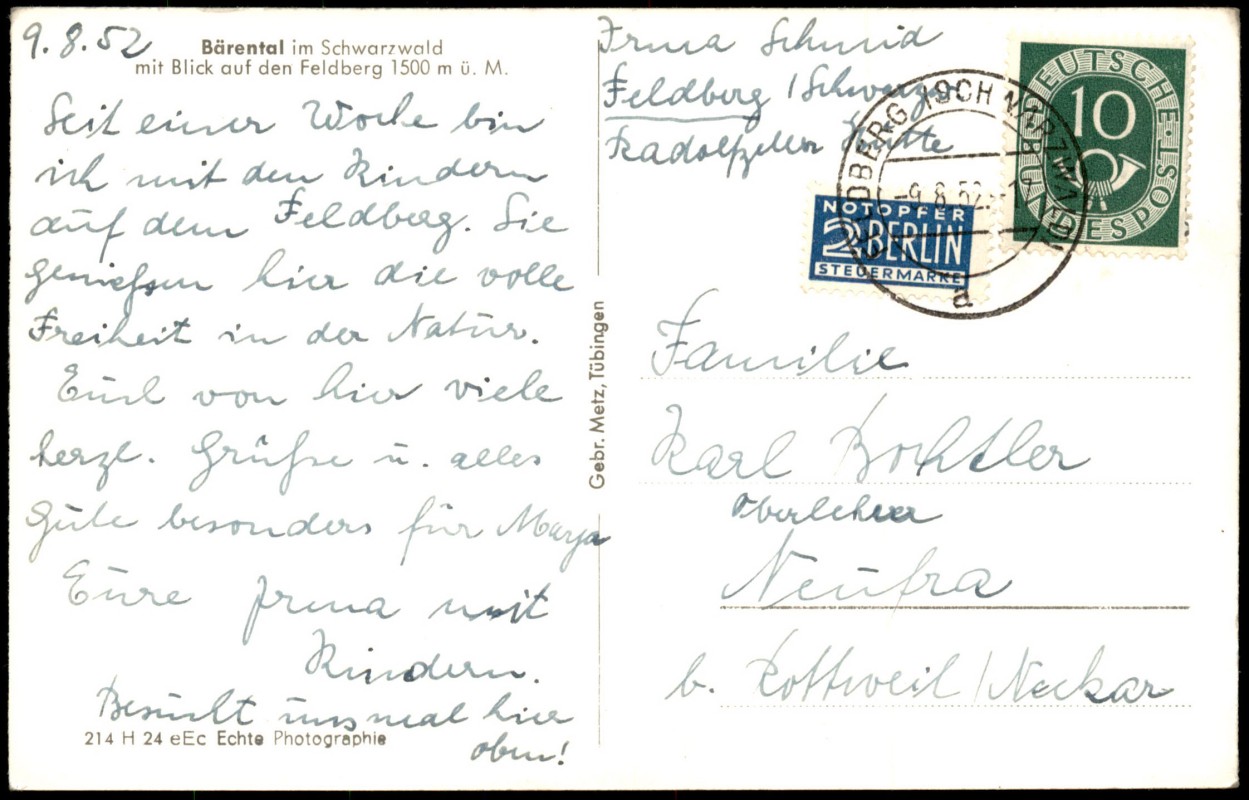 9.8.52
Bärental im Schwarzwald
mit Blick auf den Feldberg 1500 m ü. M.
Seit einer Woche bin
ich mit den Kindern
auf dem Feldberg. Sie
genießen hier die volle
Freiheit in der Natur.
Euch von hier viele
herzl. Grüße u. alles
Gute besonders für Marja
Eure Irma mit
Kindern.
Besucht uns mal hier
oben!
214 H 24 eEc Echte Photographie
Gebr. Metz, Tübingen
Irma Schmid
Feldberg /
Radolfzeller Hütte
FELDBERG (SCHWARZWALD)
-9.8.52.-17
a
NOTOPFER
2 BERLIN
STEUERMARKE
DEUTSCHE
BUNDESPOST
10
Familie
Karl Bochtler
Oberlehrer
Neufra
b. Rottweil/Neckar